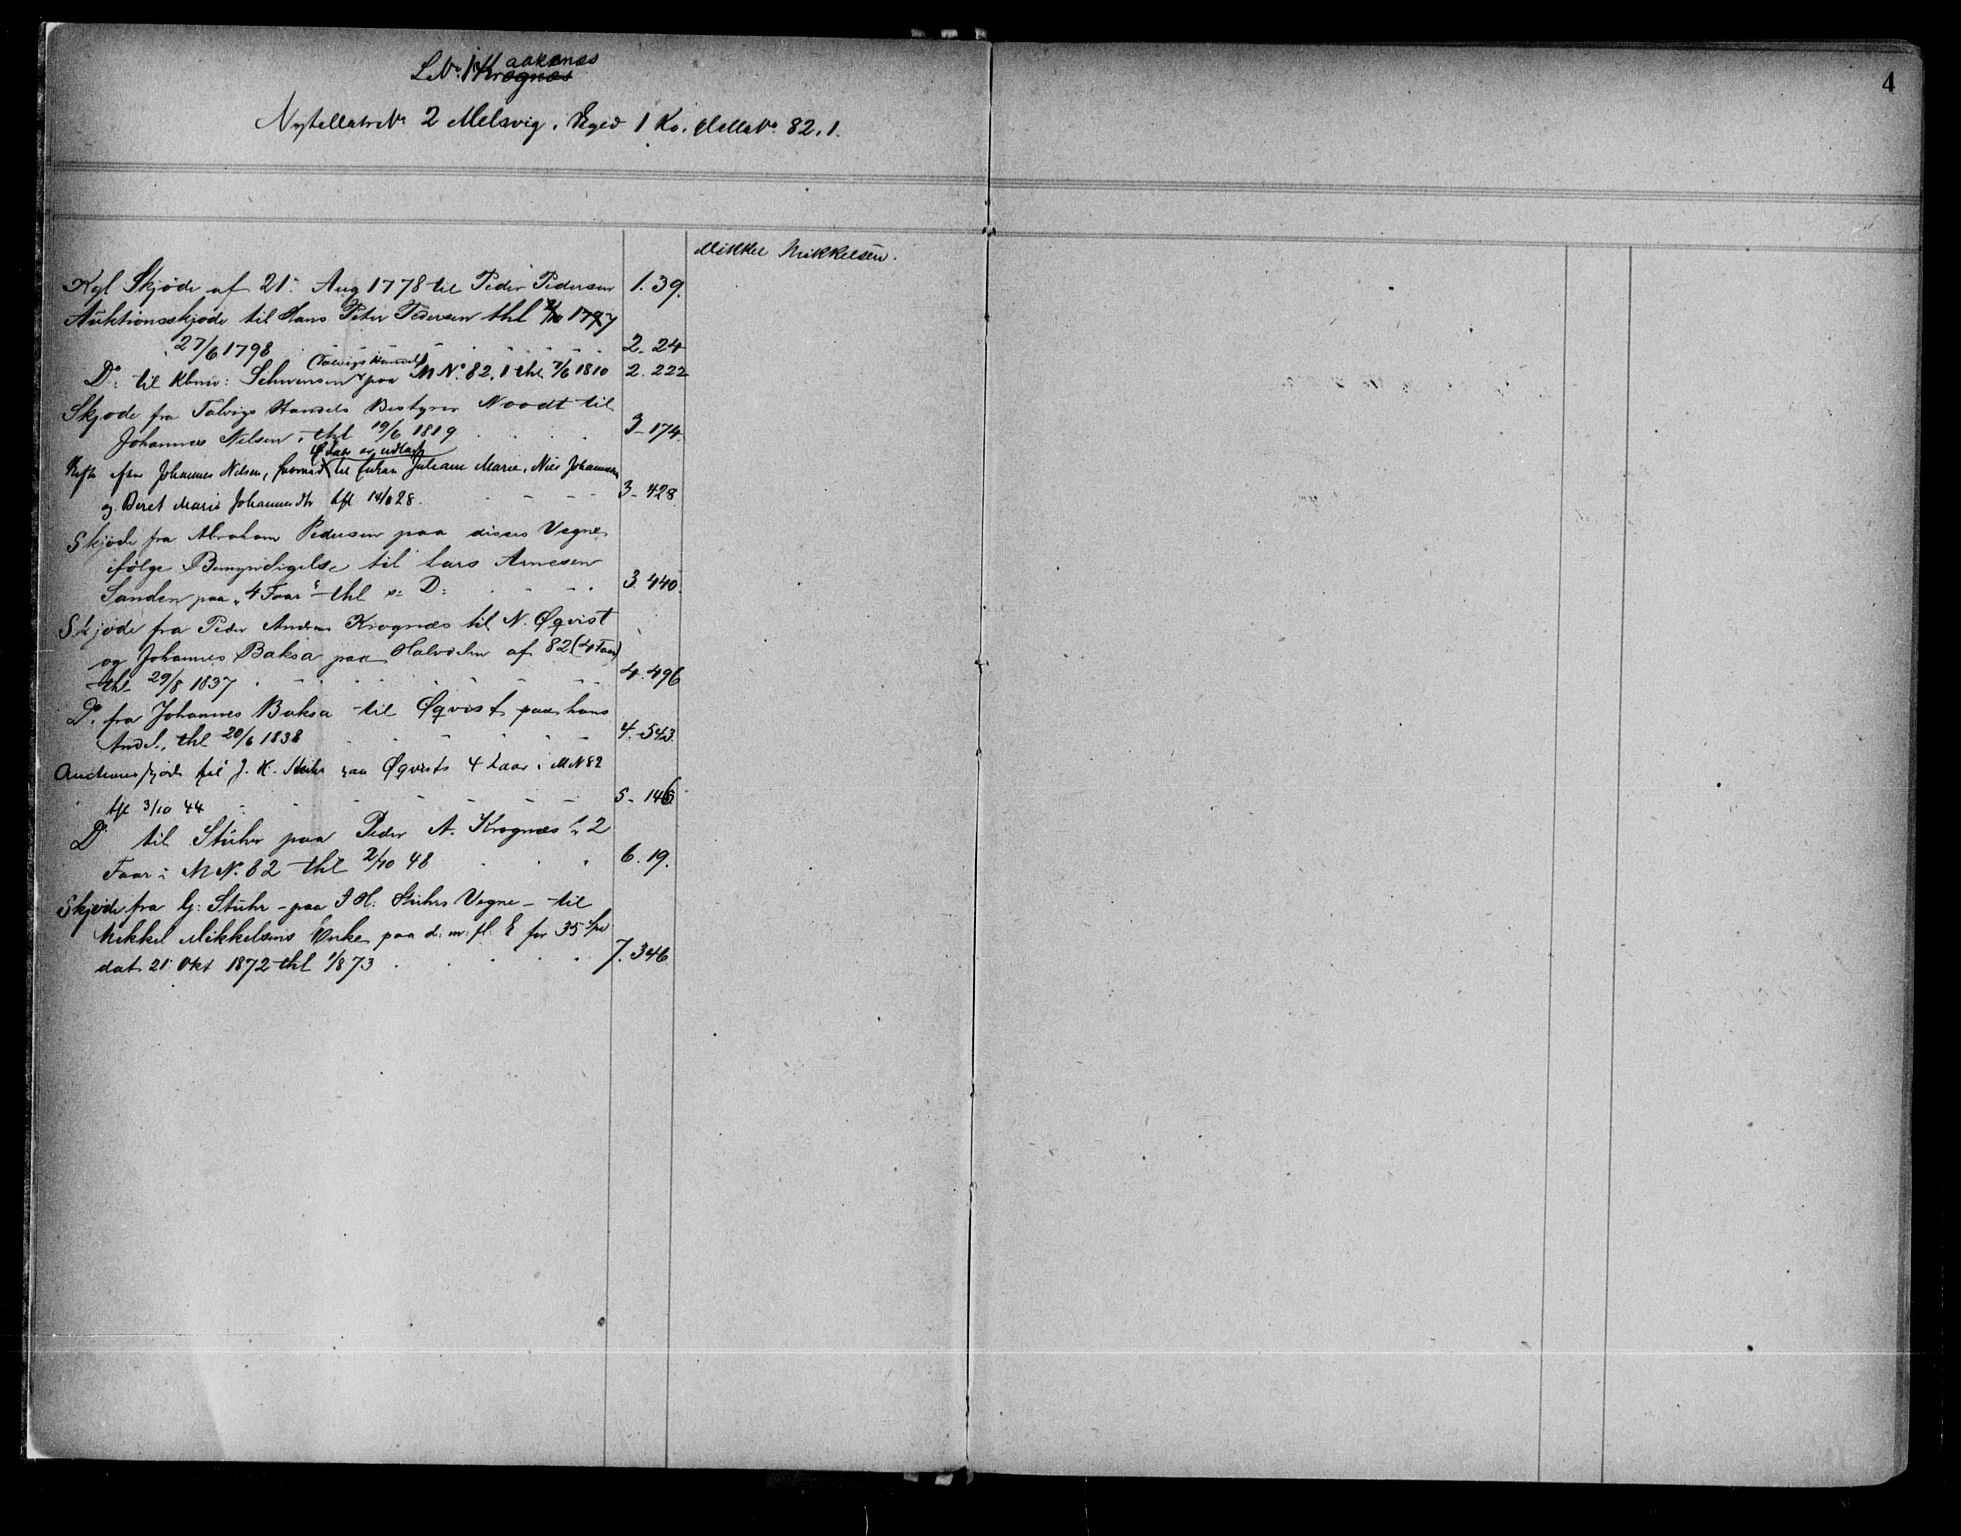 4
LNo. 1 Kaakenæs
Krognæs
No 2 Melsvig. Eged 1 Ko. No. 82.1.
Mikkel Mikkelsen.
Kgl Skjøde af 21. Aug 1778 til Peder Pedersen 1. 39.
Auktionsskjøde til Hans Peter Pedersen thl 1797
27/6 1798 2. 24
(Talvigs Handel)
Do. til Kbmd: Schwensen paa MNo. 82.1 thl 7/6 1810 2. 222
Skjøde fra Talvigs Handels Bestyrer Noodt til
Johannes Nilsen, thl 19/6 1819 3-174
er udlagt
efter Johannes Nilsen, til Enken Juliane Marie, Niels Johannesen
og Beret Marie Johannesdtr 3-428
Skjøde fra Abraham Pedersen paa disses Vegne
ifølge Bemyndigelse til Lars Arnesen
Sanden paa "4 Faar" thl s: D: 3. 440.
Skjøde fra Peder Andreas Krognæs til N. Øqvist
og Johannes Baksa paa Halvdelen af 82 (4 Faar)
thl 29/8 1837 4. 496
Do. fra Johannes Baksa til Øqvist paa hans
Andel, thl 20/6 1838 4. 543.
Auctionsskjøde til J. H. Stuhr paa Øqvists 4 Faar i MN 82
3/10 44 5- 146
Do til Stuhr paa Peder A. Krognæs's 2
Faar i MN. 82 thl 2/10 48 6. 19.
Skjøde fra G: Stuhr - paa J H: Stuhrs Vegne - til
Mikkel Mikkelsens Enke paa d: m: fl: E for 35 Spd
dat. 21 Okt 1872 thl 1/8 73 7. 346.